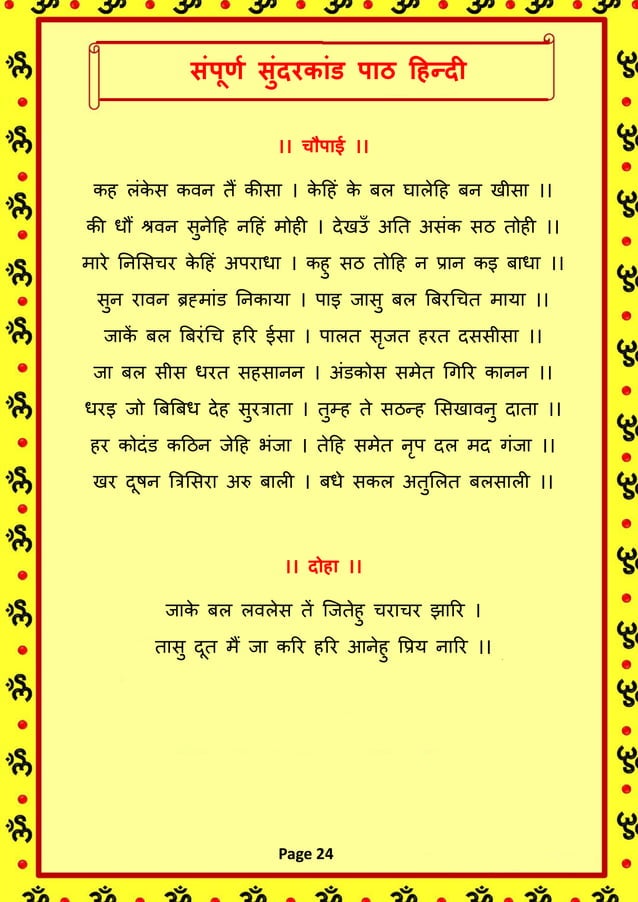 संपूर्ण सुंदरकांड पाठ हिन्दी
।। चौपाई ।।
कह लंकेस कवन तैं कीसा । केहिं के बल घालेहि बन खीसा ।।
की धौं श्रवन सुनेहि नहिं मोही । देखउँ अति असंक सठ तोही ।।
मारे निसिचर केहिं अपराधा । कहु सठ तोहि न प्रान कइ बाधा ।।
सुन रावन ब्रह्मांड निकाया । पाइ जासु बल बिरचित माया ।।
जाकें बल बिरंचि हरि ईसा । पालत सृजत हरत दससीसा ।।
जा बल सीस धरत सहसानन । अंडकोस समेत गिरि कानन ।।
धरइ जो बिबिध देह सुरत्राता । तुम्ह ते सठन्ह सिखावनु दाता ।।
हर कोदंड कठिन जेहि भंजा । तेहि समेत नृप दल मद गंजा ।।
खर दूषन त्रिसिरा अरु बाली । बधे सकल अतुलित बलसाली ।।
।। दोहा ।।
जाके बल लवलेस तें जितेहु चराचर झारि ।
तासु दूत मैं जा करि हरि आनेहु प्रिय नारि ।।
Page 24